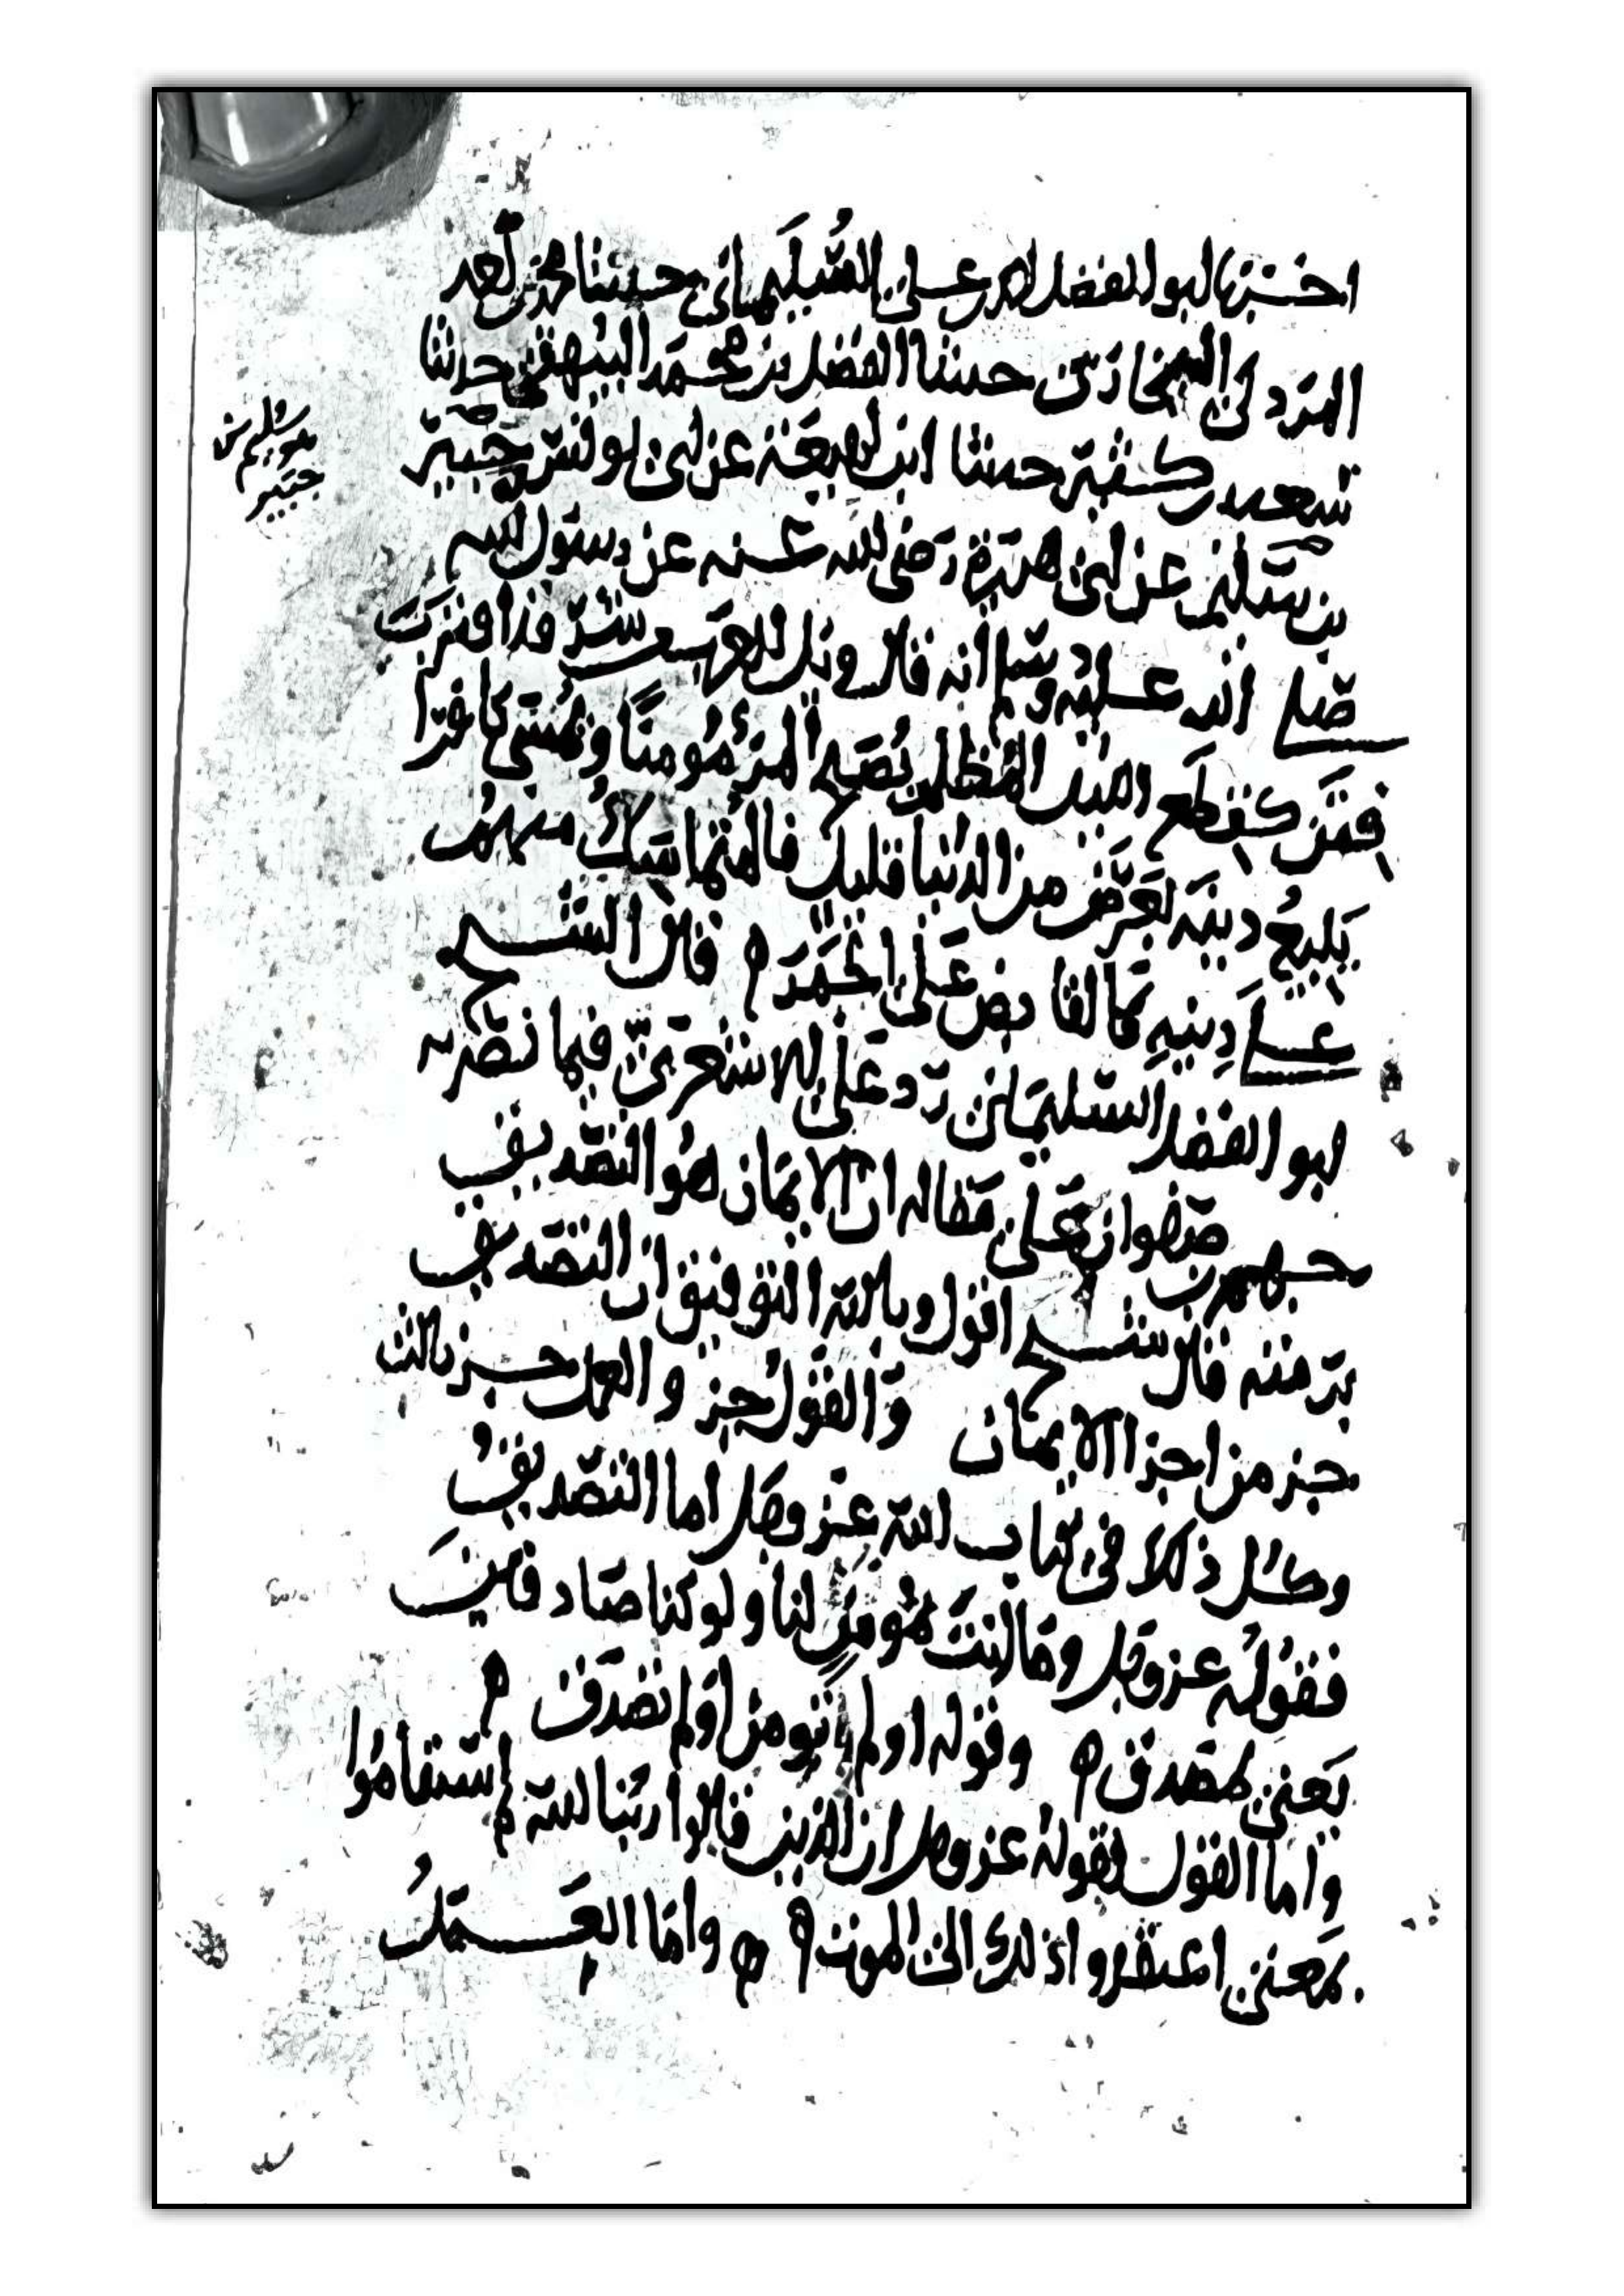 اخبرنا ابو الفضل احمد بن علي السليماني حدثنا محمد بن
البخاري حدثنا الفضل بن محمد البيهقي حدثنا
سعيد بن كثير حدثنا ابن لهيعة عن ابي يونس جبير
بن سليم عن ابي هريرة رضي الله عنه عن رسول الله
هو سليم بن
جبير
صلى الله عليه وسلم انه قال ويل للعرب من شر قد اقترب
فتن كقطع الليل المظلم يصبح المرء مومنا ويمسي كافرا
يبيع دينه بعرض من الدنيا قليل فالمتماسك منهم
على دينه كالقابض على الجمر ه قال الشيخ
ابو الفضل السليماني رد على الاشعري فيما نصر به
جهم بن صفوان على مقاله ان الايمان هو التصديق
قال شيخ اقول وبالله التوفيق ان التصديق
جز من اجزا الايمان والقول جز والعمل جز ثالث
وكل ذلك في كتاب الله عز وجل اما التصديق
فقوله عز وجل وما انت بمومن لنا ولو كنا صادقين
يعني بمصدق ه وقوله اولم تومن اولم تصدق ه
واما القول بقوله عز وجل ان الذين قالوا ربنا الله ثم استقاموا
بمعنى اعتقدوا ذلك الى الموت ه ه واما العمل